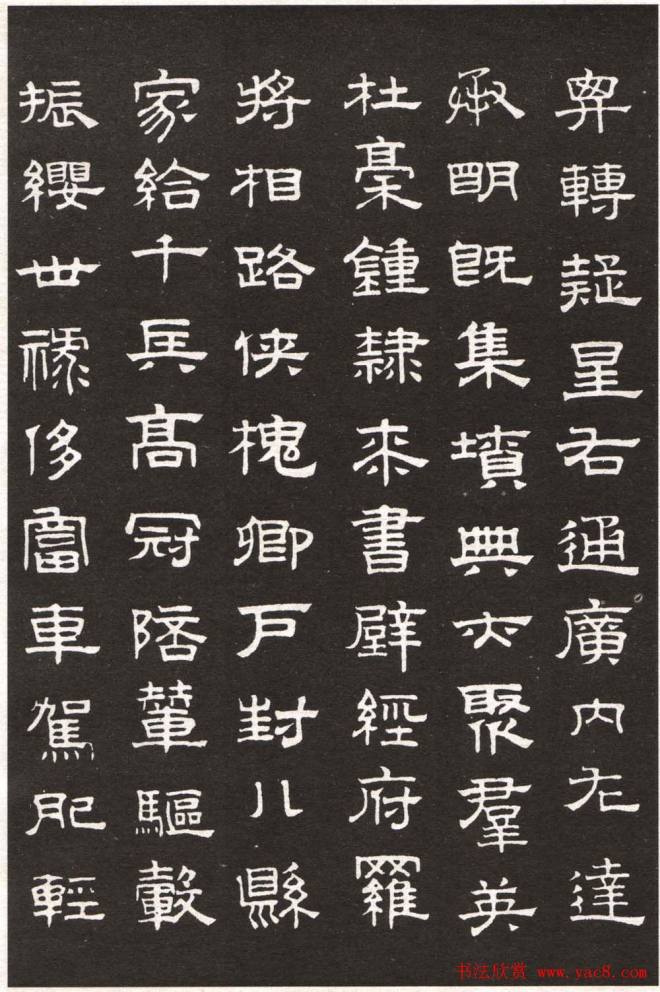 弁轉疑星右通廣内左達
承明既集墳典亦聚羣英
杜稾鍾隸来書壁經府羅
將相路俠槐卿戶封八縣
家給千兵高冠陪輦驅轂
振纓世祿侈富車駕肥輕
书法欣赏 www.yac8.com